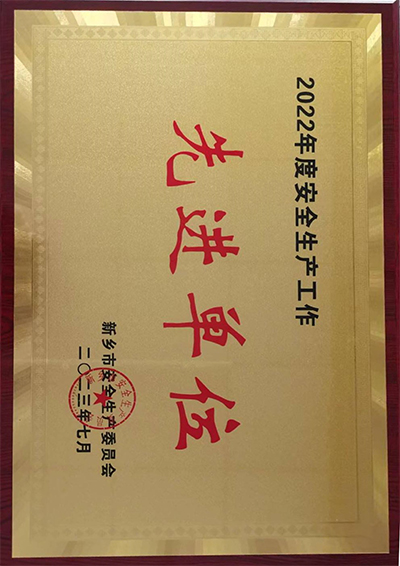 2022年度安全生产工作
先进单位
新乡市安全生产委员会
二〇二三年七月